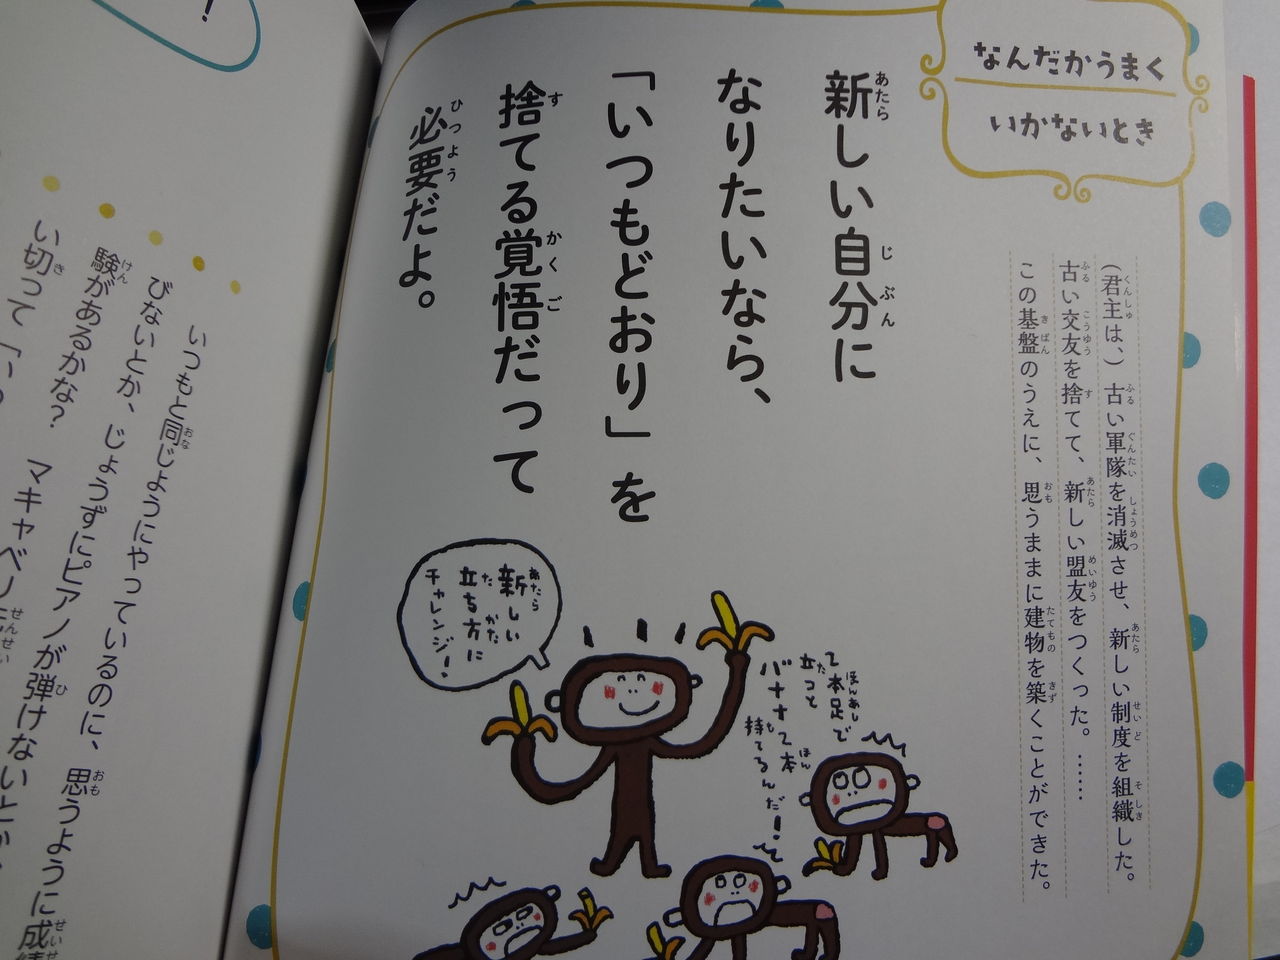 なんだかうまく
いかないとき
(君主は、)古い軍隊を消滅させ、新しい制度を組織した。
古い交友を捨てて、新しい盟友をつくった。……
この基盤のうえに、思うままに建物を築くことができた。
新しい自分に
なりたいなら、
「いつもどおり」を
捨てる覚悟だって
必要だよ。
新しい
立ち方に
チャレンジ!
2本足で
立つと
バナナも2本
持てるんだ!
!
いつもと同じようにやっているのに、思うように成績
びないとか、じょうずにピアノが弾けないとか、
験があるかな? マキャベリ先生
い切って「いつ